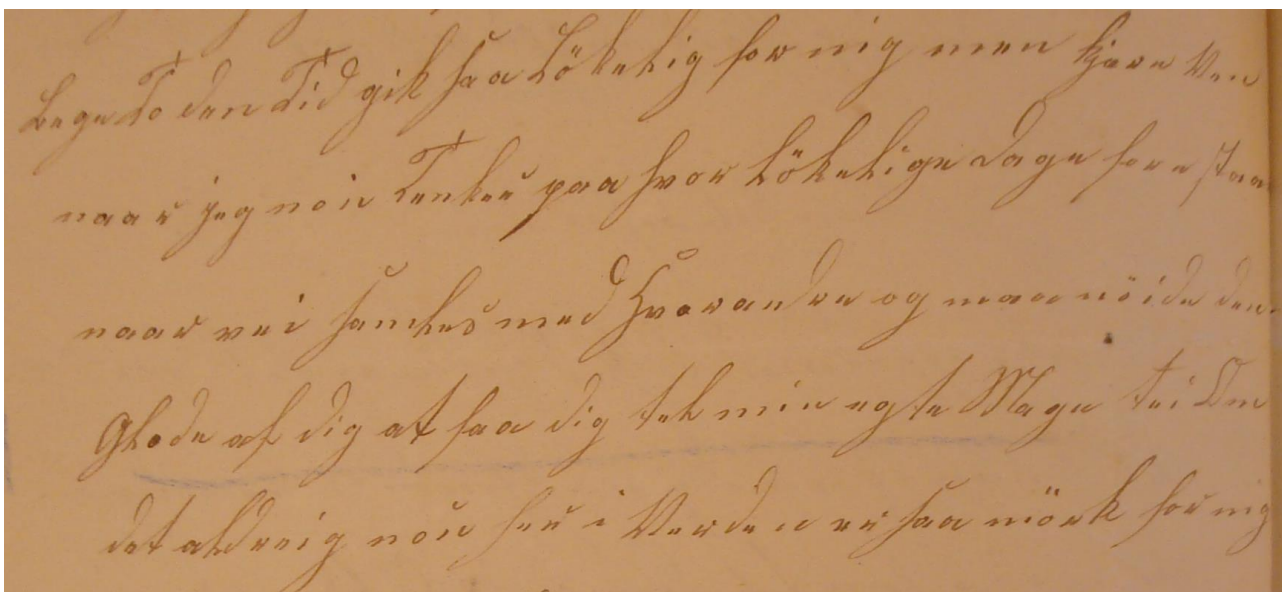 Bege To den Tid gik saa Lökelig for mig men kjære Ven
naar jeg nou Tenker paa hvor Lökelige Dage fore staa
naar vei samles med Hverandre og maa nöide den
Glæde af dig at faa dig tel min egte Mage tei Om
det aldreig nou ser i Verden er saa mörk for mig